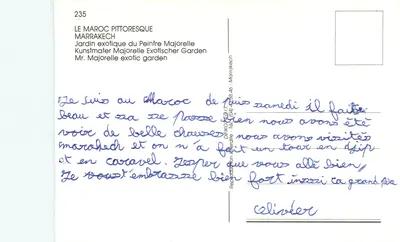 235
LE MAROC PITTORESQUE
MARRAKECH
Jardin exotique du Peintre Majorelle
Kunstmaler Majorelle Exotischer Garden
Mr. Majorelle exotic garden
Je suis au Maroc de puis samedi il fait
beau et sa se passe bien nous avons été
voir de belle chauses nous avons visités
marakech et on n'a fait un tour en djip
et en caravel. J'esper que vous allé bien,
Je vous t'embrasse bien fort